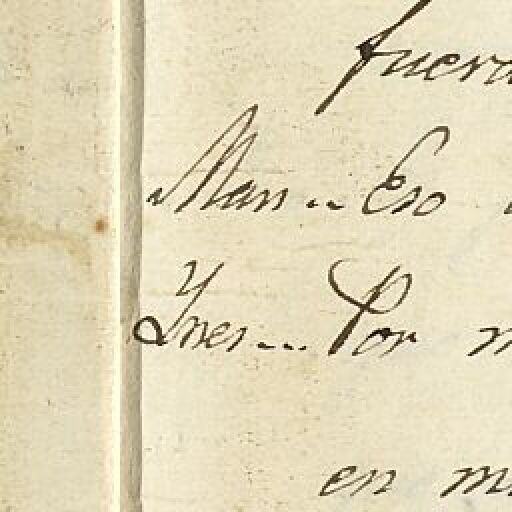 fuera
Man.. Eso
Ynes... Por m
en mi